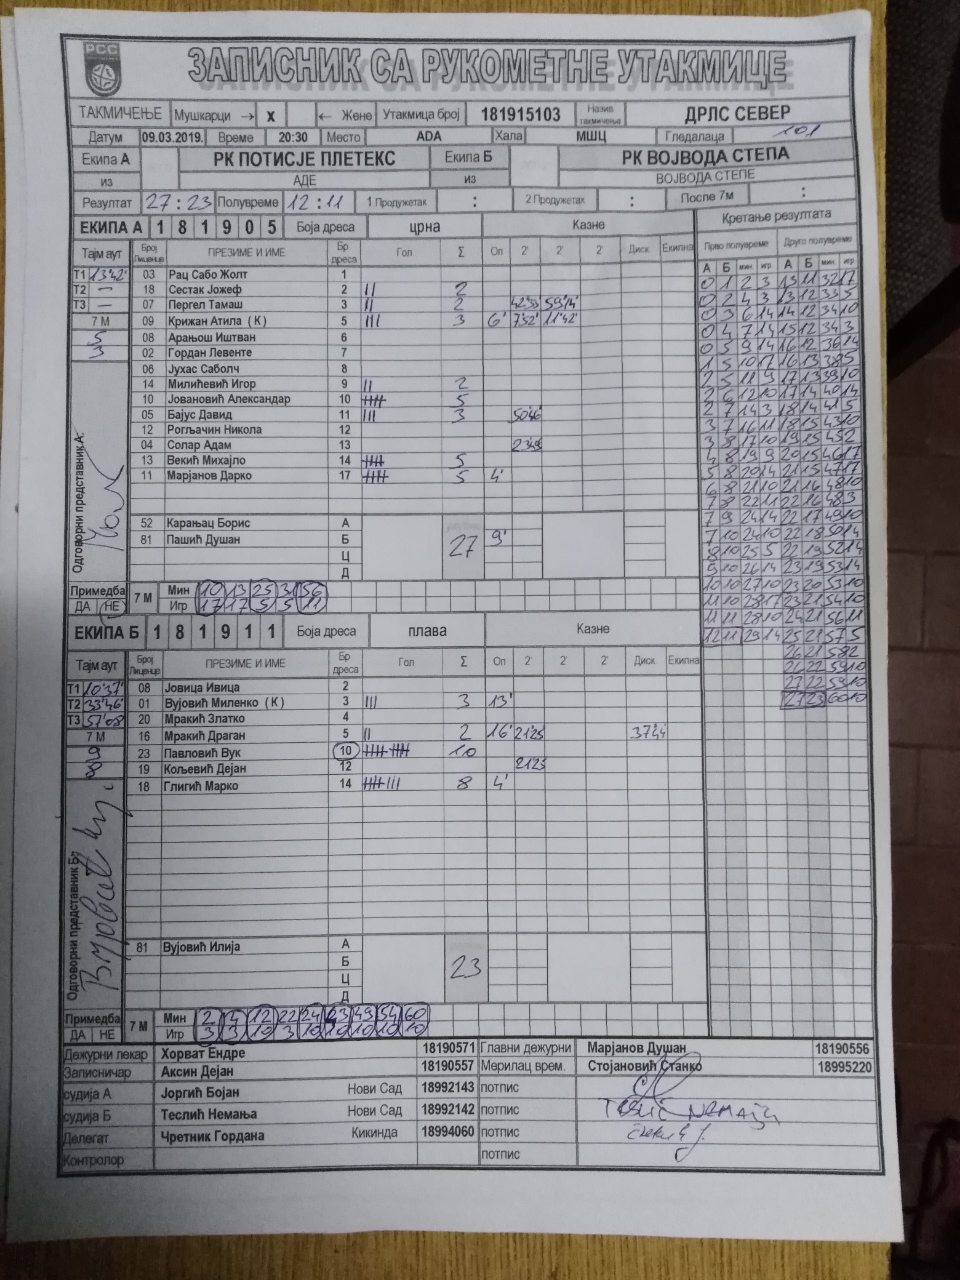 РСС
ЗАПИСНИК СА РУКОМЕТНЕ УТАКМИЦЕ
ТАКМИЧЕЊЕ Мушкарци → x ← Жене Утакмица број 181915103 Назив такмичења ДРЛС СЕВЕР
Датум 09.03.2019. Време 20:30 Место ADA Хала МШЦ Гледалаца 101
Екипа А РК ПОТИСЈЕ ПЛЕТЕКС Екипа Б РК ВОЈВОДА СТЕПА
из АДЕ из ВОЈВОДА СТЕПЕ
Резултат 27:23 Полувреме 12:11 1 Продужетак : 2 Продужетак : После 7м :
ЕКИПА А 1 8 1 9 0 5 Боја дреса црна Казне Кретање резултата
Тајм аут Број Лиценце ПРЕЗИМЕ И ИМЕ Бр дреса Гол Σ Оп 2' 2' 2' Диск. Екипна Прво полувреме Друго полувреме
А Б мин игр А Б мин игр
Т1 13'42" 03 Рац Сабо Жолт 1
Т2 — 18 Сестак Јожеф 2 II 2
Т3 — 07 Пергел Тамаш 3 II 2 59'14"
7 М 09 Крижан Атила ( К ) 5 III 3 6' 7'52" 11'42"
5 08 Арањош Иштван 6
3 02 Гордан Левенте 7
06 Јухас Саболч 8
14 Милићевић Игор 9 II 2
10 Јовановић Александар 10 IIII 5
05 Бајус Давид 11 III 3 50'46"
12 Рогљачин Никола 12
04 Солар Адам 13
13 Векић Михајло 14 IIII 5
11 Марјанов Дарко 17 IIII 5 4'
52 Карањац Борис А
81 Пашић Душан Б 27 9'
Ц
Д
Одговорни представник А:
Примедба 7 М Мин 10 13 25 31 56
ДА НЕ Игр 17 17 5 5 11
0 1 2 3 13 11 32 17
0 2 4 3 13 12 33 5
0 3 6 14 14 12 34 10
0 4 7 14 15 12 34 3
0 5 9 14 16 12 36 14
1 5 10 17 16 13 38 5
2 5 11 9 17 13 39 10
2 6 12 10 17 14 40 14
2 7 14 3 18 14 41 5
3 7 16 11 18 15 43 10
3 8 17 10 19 15 45 2
4 8 19 9 20 15 46 17
5 8 20 14 21 15 47 17
6 8 21 10 21 16 48 10
7 8 22 11 22 16 48 3
7 9 24 14 22 17 49 10
7 10 24 10 22 18 50 14
8 10 25 5 22 19 52 14
9 10 26 14 23 19 53 14
10 10 27 10 23 20 53 10
11 10 28 17 23 21 54 10
11 11 28 10 24 21 56 11
12 11 29 14 25 21 57 5
26 21 58 2
26 22 59 10
27 22 59 10
27 23 60 10
ЕКИПА Б 1 8 1 9 1 1 Боја дреса плава Казне
Тајм аут Број Лиценце ПРЕЗИМЕ И ИМЕ Бр дреса Гол Σ Оп 2' 2' 2' Диск. Екипна
Т1 10'37" 08 Јовица Ивица 2
Т2 33'46" 01 Вујовић Миленко ( К ) 3 III 3 13'
Т3 57'08" 20 Мракић Златко 4
7 М 16 Мракић Драган 5 II 2 16' 21'25" 37'44"
9 23 Павловић Вук 10 IIII IIII 10
19 Кољевић Дејан 12 21'25"
18 Глигић Марко 14 IIII III 8 4'
Одговорни представник Б:
81 Вујовић Илија А
Б 23
Ц
Д
Примедба 7 М Мин 2 4 12 22 24 43 49 54 60
ДА НЕ Игр 3 3 10 3 10 10 10 10 10
Дежурни лекар Хорват Ендре 18190571 Главни дежурни Марјанов Душан 18190556
Записничар Аксин Дејан 18190557 Мерилац врем. Стојановић Станко 18995220
судија А Јоргић Бојан Нови Сад 18992143 потпис
судија Б Теслић Немања Нови Сад 18992142 потпис Teslić Nemanja
Делегат Чретник Гордана Кикинда 18994060 потпис
Контролор потпис